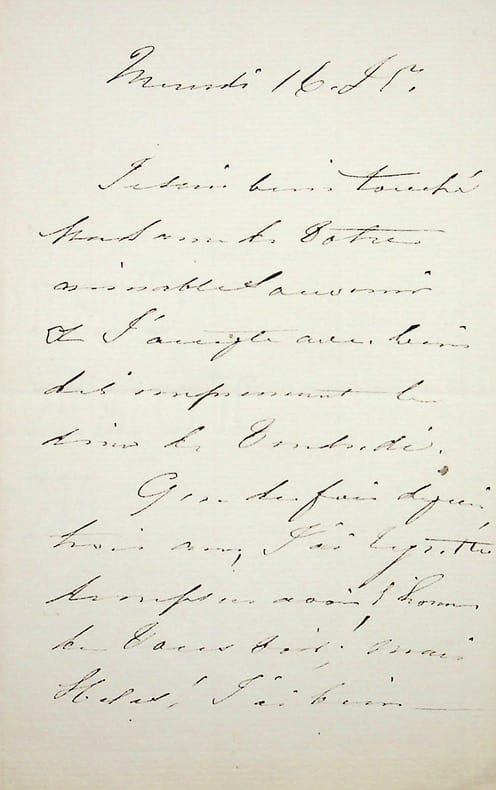 Mercredi 16.
Je suis bien touché
Madame de Votre
aimable Souvenir
& J'accepte avec bien
de l'empressement le
diner de Vendredi.
Que de fois depuis
trois ans, J'ai regretté
de ne plus avoir l'honneur
de Vous voir! mais
Helas! J'ai bien